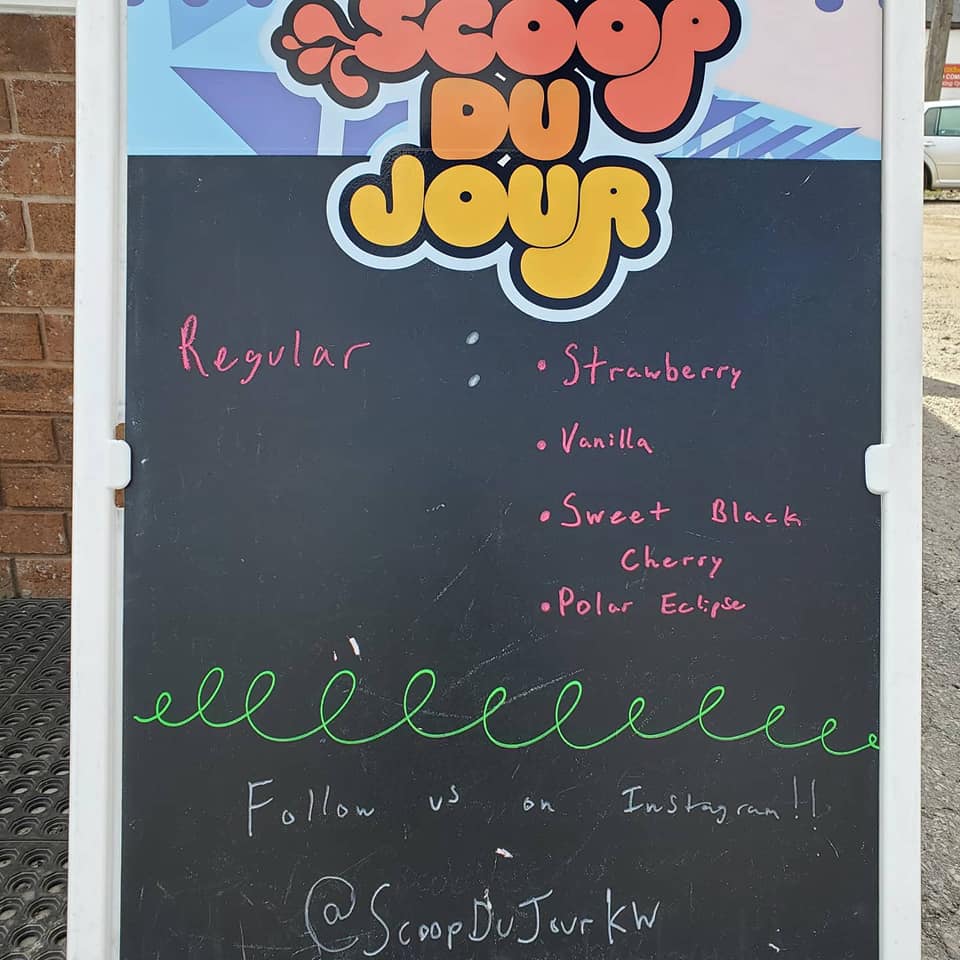 SCOOP
DU
JOUR
Regular :
• Strawberry
• Vanilla
• Sweet Black
Cherry
• Polar Eclipse
Follow us on Instagram!!
@ScoopDuJourKW